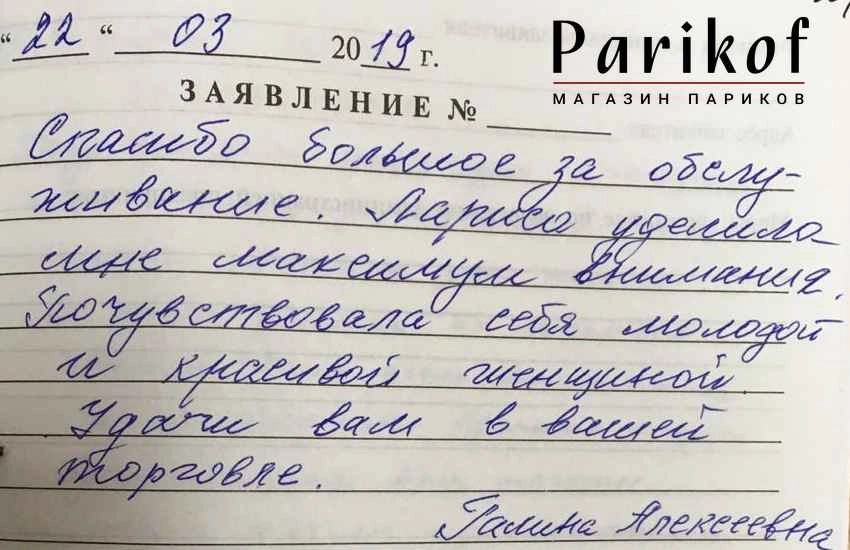 “ 22 “ 03 2019 г.
Parikof
МАГАЗИН ПАРИКОВ
ЗАЯВЛЕНИЕ №
Спасибо большое за обслу-
живание. Лариса уделила
мне максимум внимания.
Почувствовала себя молодой
и красивой женщиной.
Удачи вам в вашей
торговле.
Галина Алексеевна